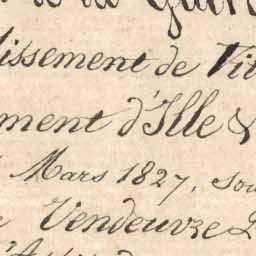 issement de Vit
ment d'Ille &
Mars 1827, sou
Vendeuvre